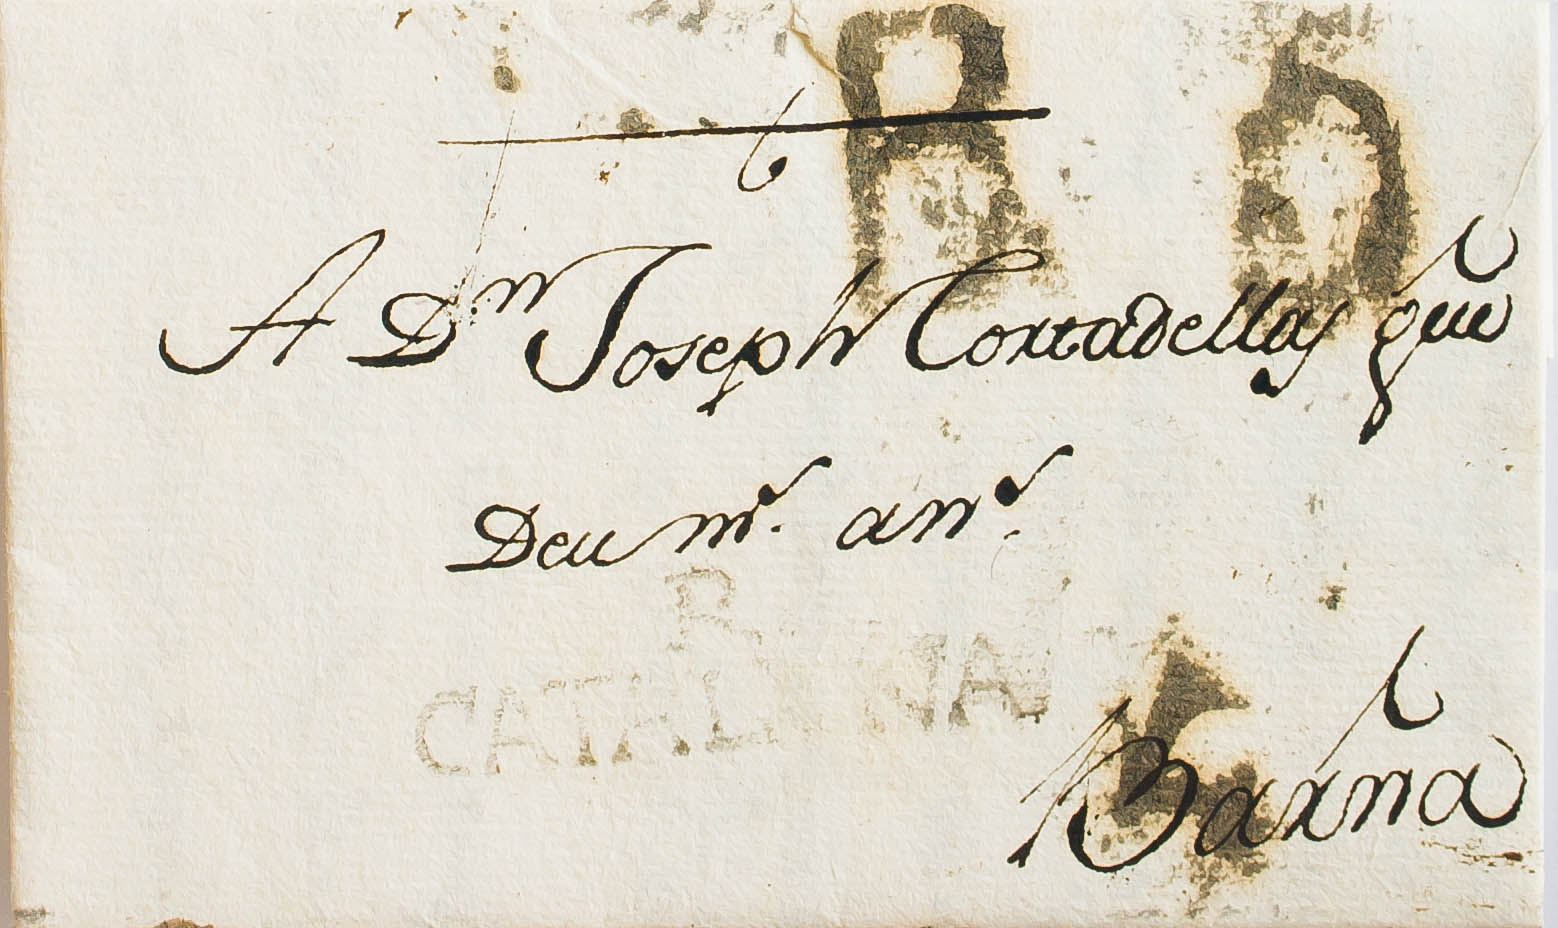 R 5
A Dn Joseph Cortadellas que
Deu m.s an.s
R
CATALUÑA
Barna